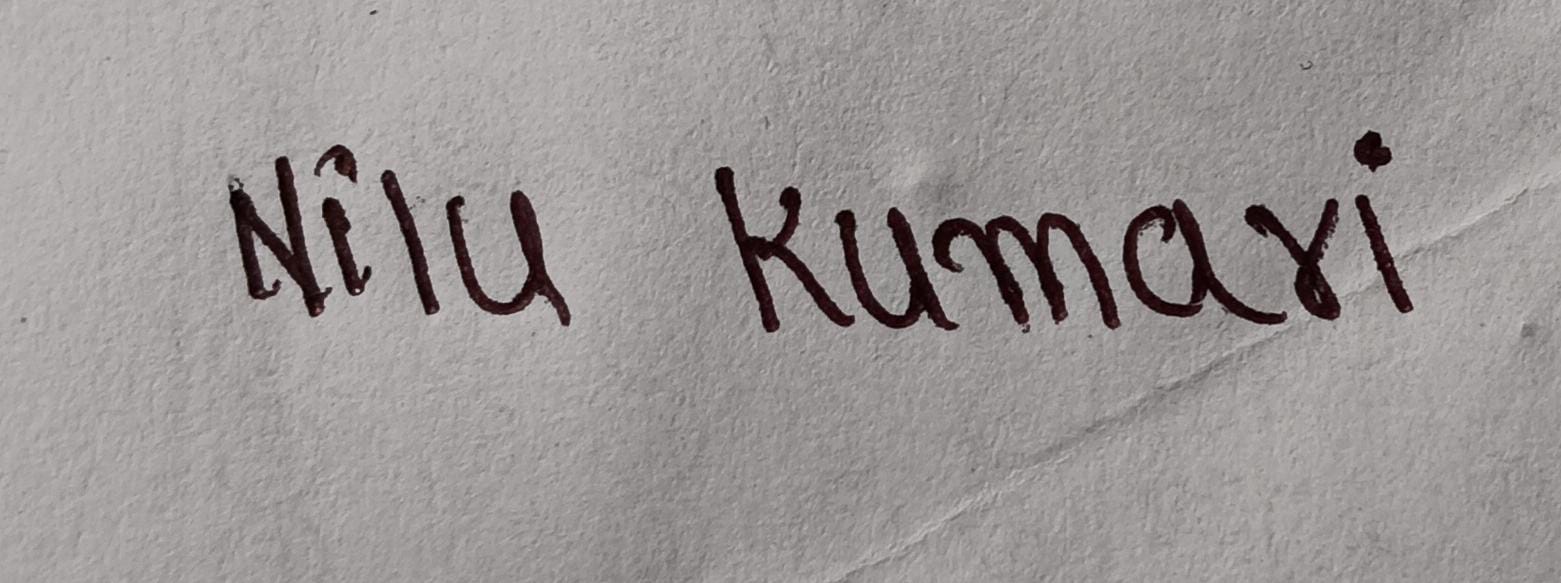 Nilu Kumari